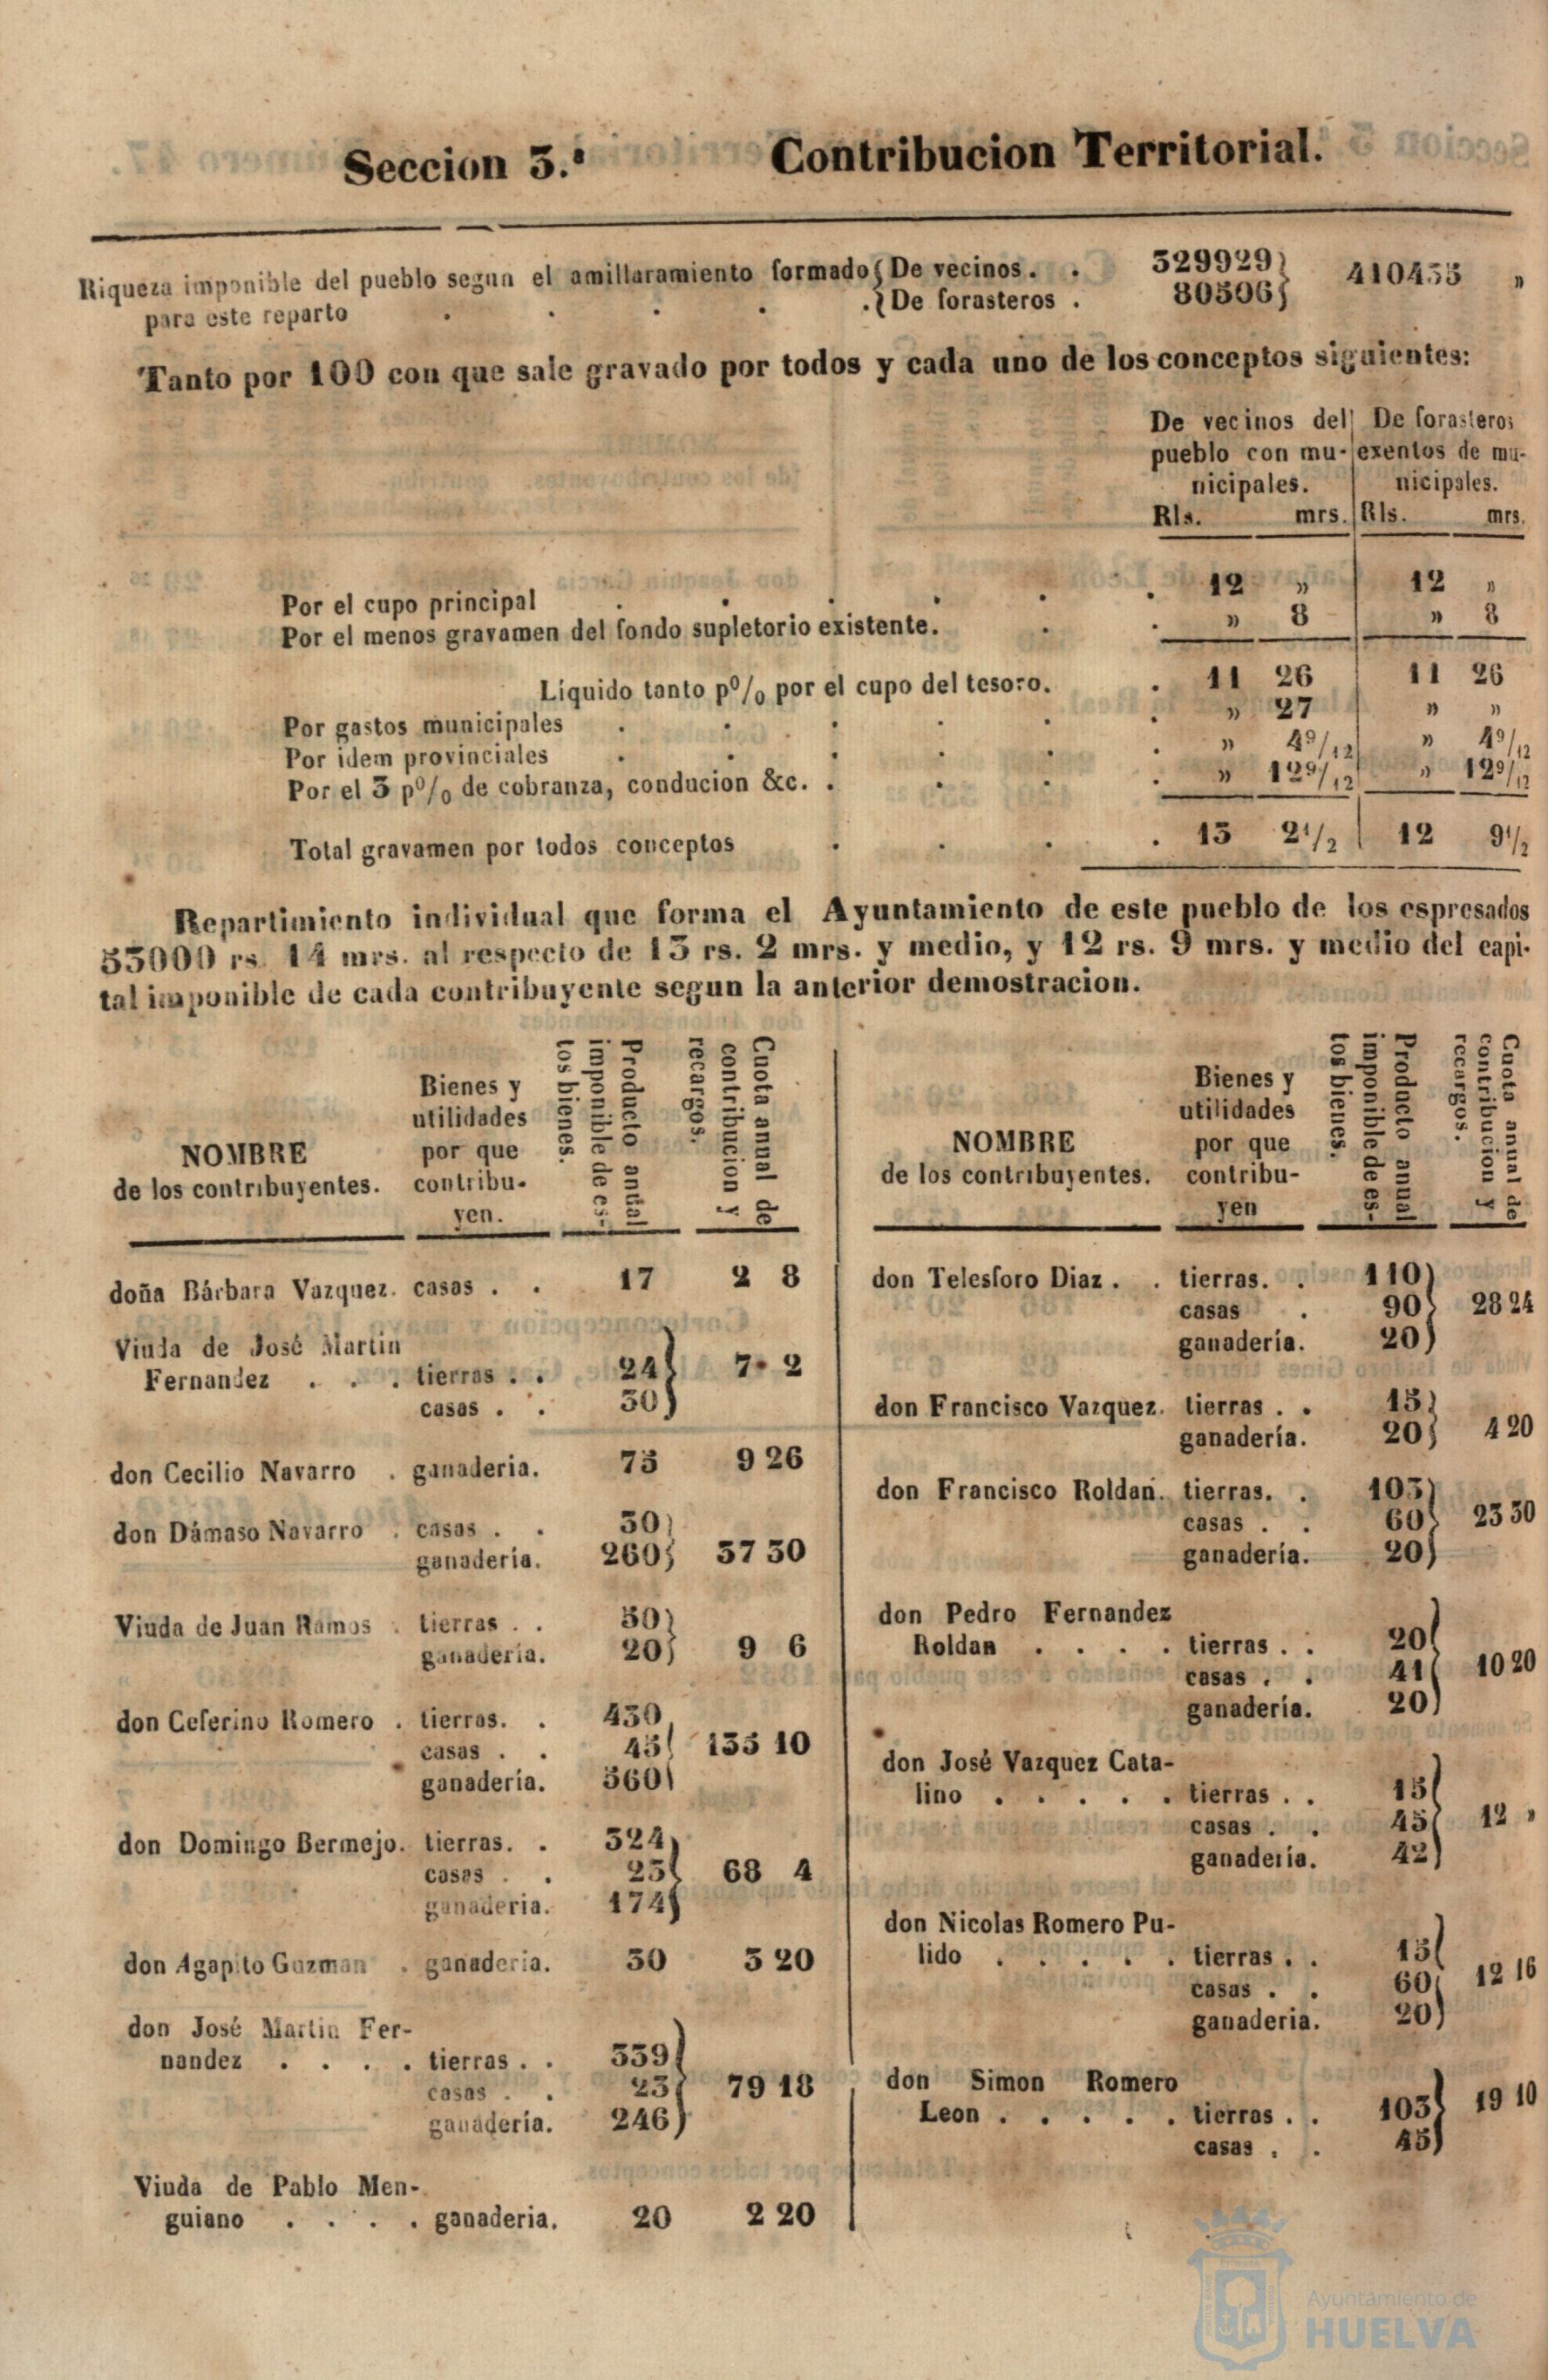 Seccion 3.ª Contribucion Territorial.
Riqueza imponible del pueblo segun el amillaramiento formado { De vecinos. . 329929 } 410435 »
para este reparto . . . . . { De forasteros . 80506 }
Tanto por 100 con que sale gravado por todos y cada uno de los conceptos siguientes:
De vecinos del De forasteros
pueblo con mu- exentos de mu-
nicipales. nicipales.
Rls. mrs. Rls. mrs.
Por el cupo principal . . . . . . 12 » 12 »
Por el menos gravamen del fondo supletorio existente. . . » 8 » 8
Líquido tanto p⁰/₀ por el cupo del tesoro. . 11 26 11 26
Por gastos municipales . . . . . . » 27 » »
Por idem provinciales . . . . . . » 4 9/12 » 4 9/12
Por el 3 p⁰/₀ de cobranza, conducion &c. . . . . » 12 9/12 » 12 9/12
Total gravamen por todos conceptos . . . . 13 2 1/2 12 9 1/2
Repartimiento individual que forma el Ayuntamiento de este pueblo de los espresados
53000 rs. 14 mrs. al respecto de 13 rs. 2 mrs. y medio, y 12 rs. 9 mrs. y medio del capi-
tal imponible de cada contribuyente segun la anterior demostracion.
NOMBRE
de los contribuyentes.
Bienes y
utilidades
por que
contribu-
yen.
Producto anual
imponible de es-
tos bienes.
Cuota anual de
contribucion y
recargos.
doña Bárbara Vazquez. casas . . 17 2 8
Viuda de José Martin
Fernandez . . . tierras . . 24 } 7 2
casas . . 30 }
don Cecilio Navarro . ganaderia. 75 9 26
don Dámaso Navarro . casas . . 30 }
ganadería. 260 } 37 30
Viuda de Juan Ramos . tierras . . 50 }
ganadería. 20 } 9 6
don Ceferino Romero . tierras. . 430
casas . . 45 } 135 10
ganadería. 560 }
don Domingo Bermejo. tierras. . 324
casas . . 23 } 68 4
ganaderia. 174 }
don Agapito Guzman . ganaderia. 30 3 20
don José Martin Fer-
nandez . . . . tierras . . 339 }
casas . . 23 } 79 18
ganadería. 246 }
Viuda de Pablo Men-
guiano . . . . ganaderia. 20 2 20
NOMBRE
de los contribuyentes.
Bienes y
utilidades
por que
contribu-
yen
Producto anual
imponible de es-
tos bienes.
Cuota anual de
contribucion y
recargos.
don Telesforo Diaz . . tierras. . 110 }
casas . 90 } 28 24
ganadería. 20 }
don Francisco Vazquez. tierras . . 15 }
ganadería. 20 } 4 20
don Francisco Roldan. tierras. . 103 }
casas . . 60 } 23 30
ganadería. 20 }
don Pedro Fernandez
Roldan . . . . tierras . . 20 }
casas . . 41 } 10 20
ganadería. 20 }
don José Vazquez Cata-
lino . . . . . tierras . . 15 }
casas . . 45 } 12 »
ganadería. 42 }
don Nicolas Romero Pu-
lido . . . . . tierras . . 15 }
casas . . 60 } 12 16
ganaderia. 20 }
don Simon Romero
Leon . . . . . tierras . . 103 } 19 10
casas . . 45 }
Ayuntamiento de
HUELVA